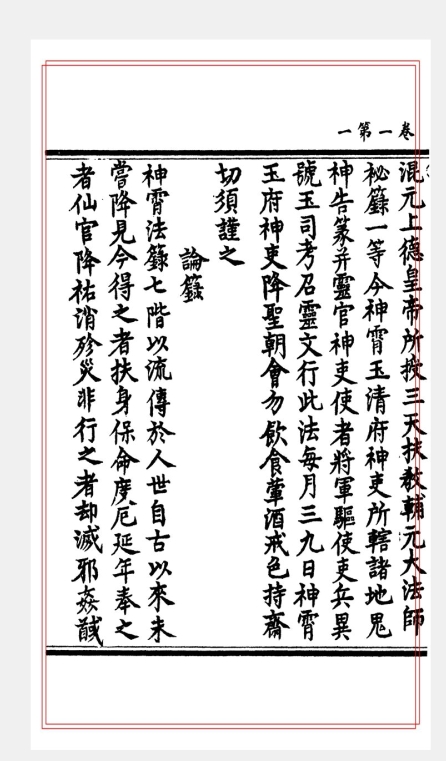 卷一第一
混元上德皇帝所授三天扶教輔元大法師
祕籙一等今神霄玉清府神吏所轄諸地鬼
神告篆并靈官神吏使者將軍驅使吏兵異
號玉司考召靈文行此法每月三九日神霄
玉府神吏降聖朝會勿飲食葷酒戒色持齋
切須謹之
論籙
神霄法籙七階以流傳於人世自古以來未
嘗降見今得之者扶身保命度厄延年奉之
者仙官降祐消殄災非行之者却滅邪姦馘